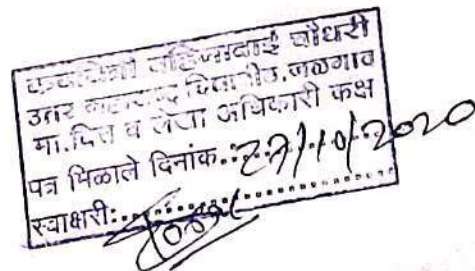 कवयित्री बहिणाबाई चौधरी
उत्तर महाराष्ट्र विद्यापीठ, जळगाव
मा.वित्त व लेखा अधिकारी कक्ष
पत्र मिळाले दिनांक:27/10/2020
स्वाक्षरी: